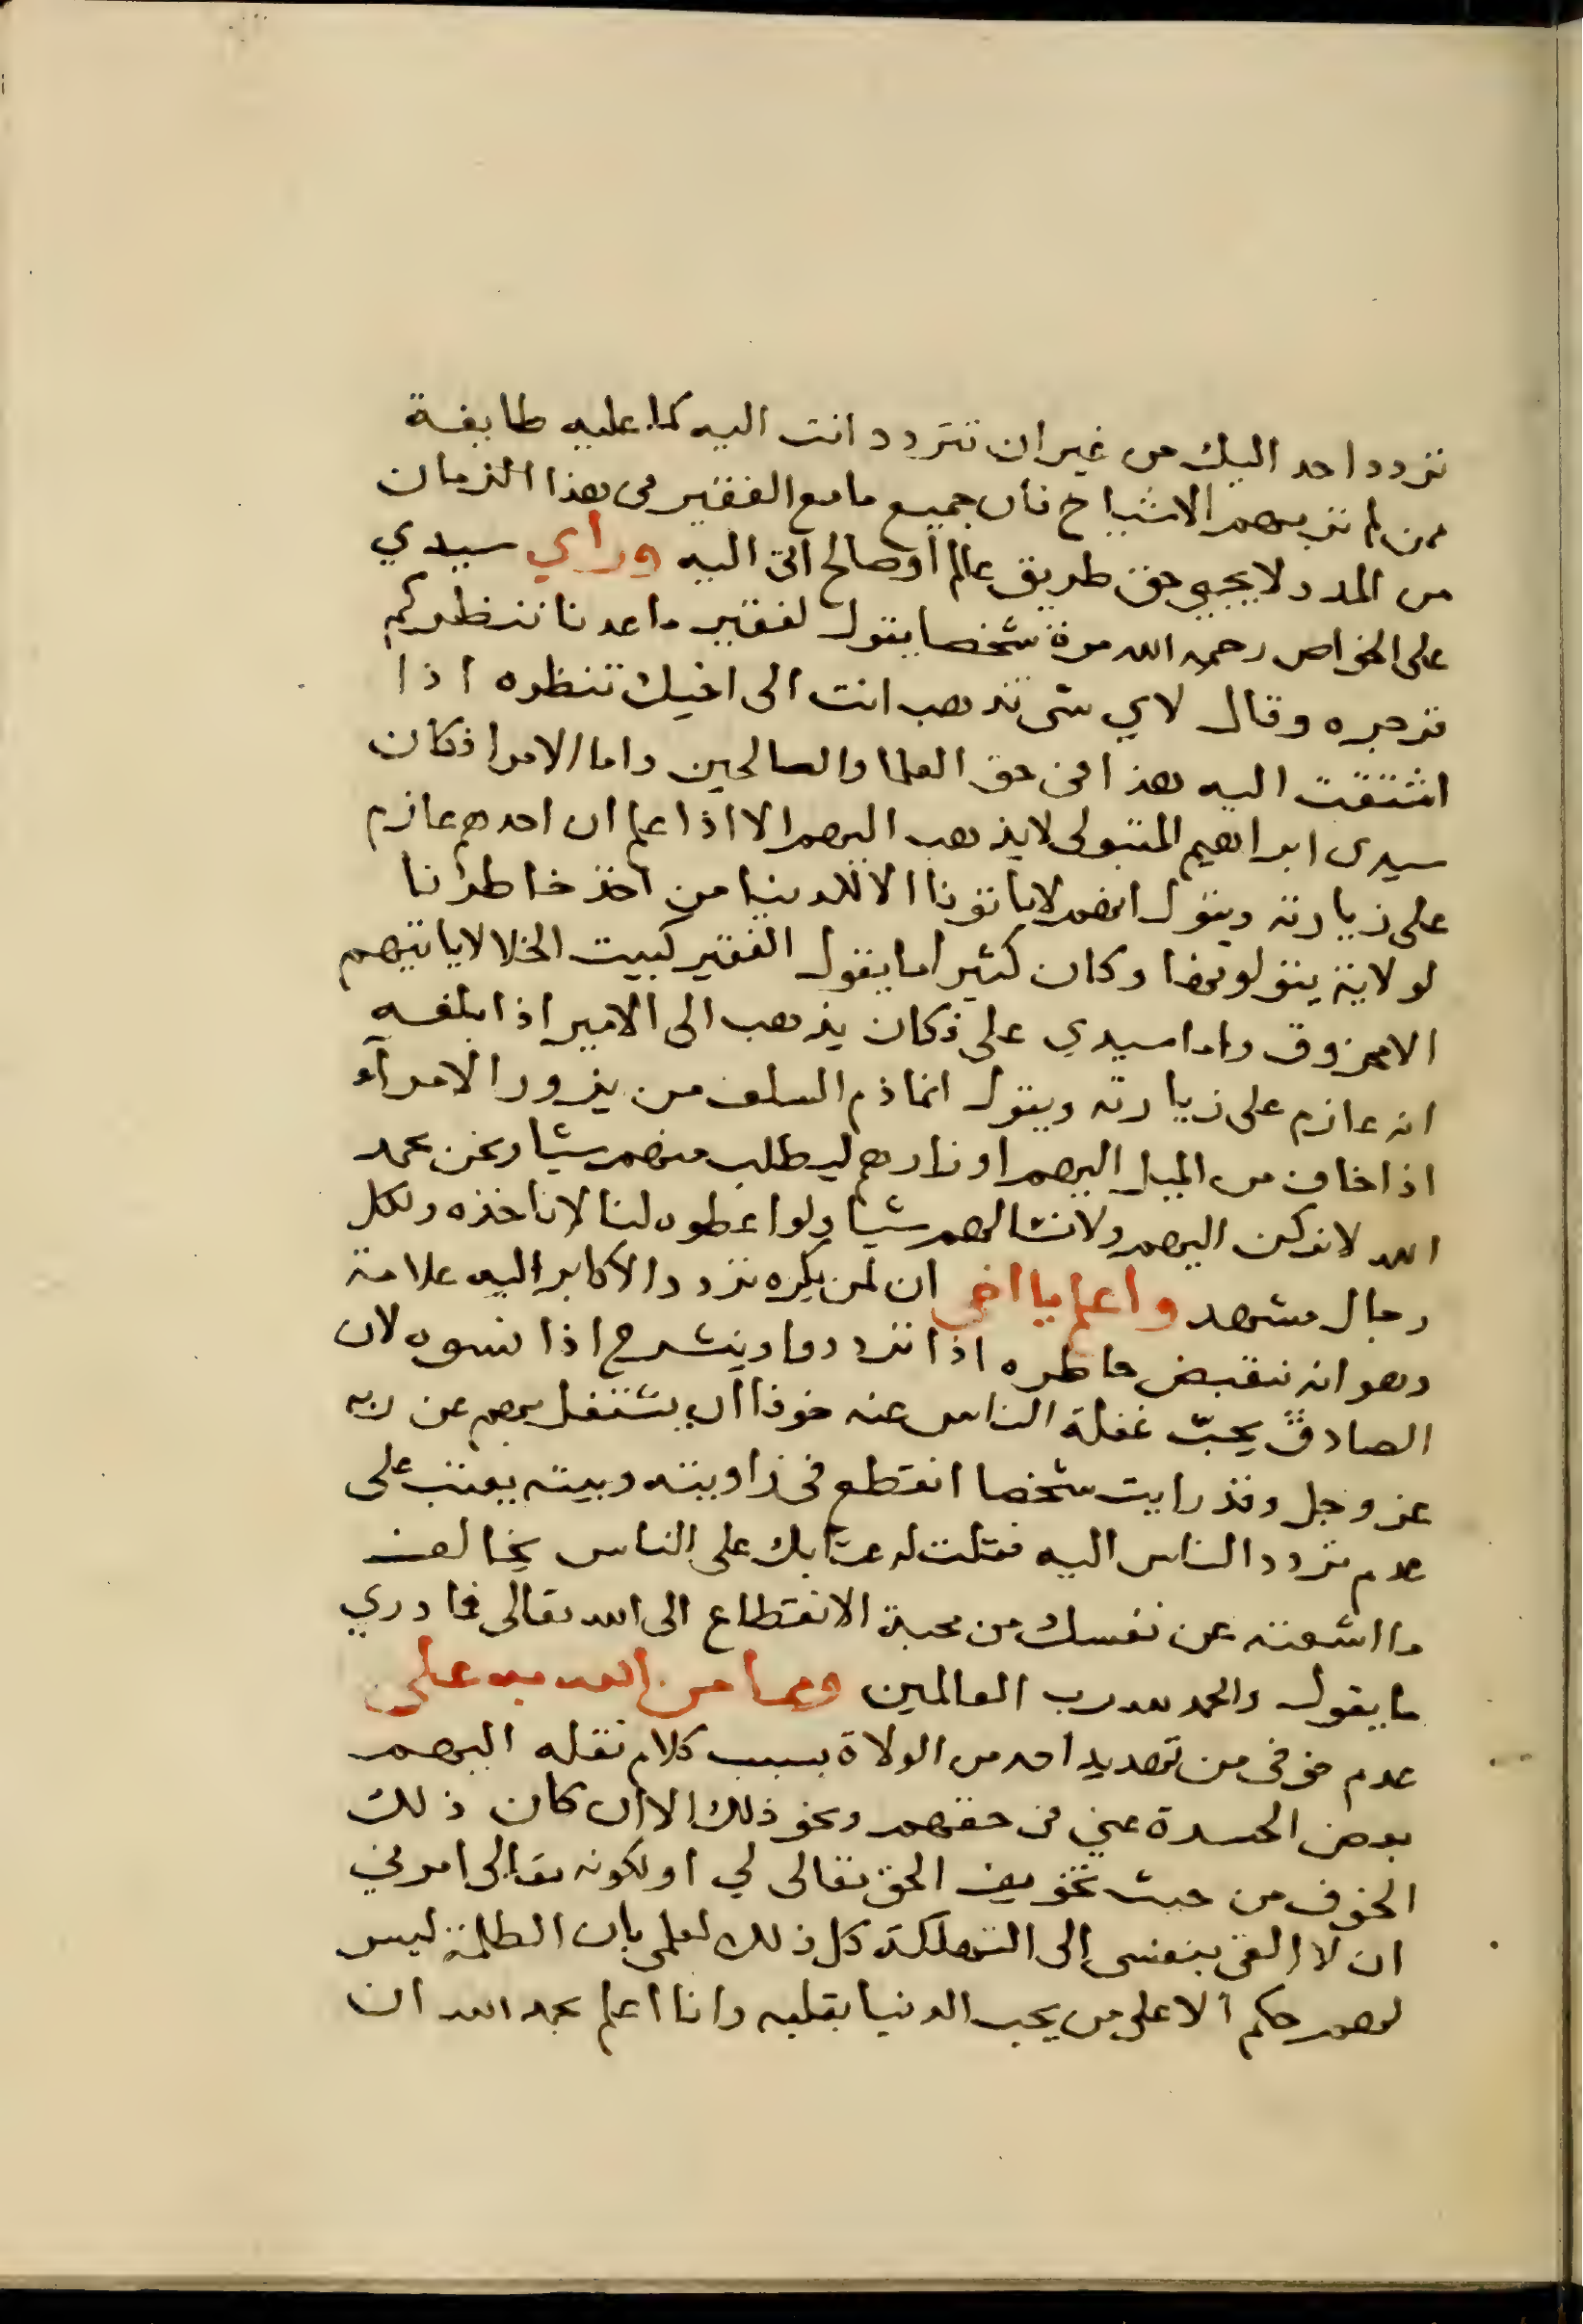 تردد احد اليك من غير ان تتردد انت اليه كما عليه طايفة
ممن لم تربيهم الاشياخ فان جميع ما مع الفقير في هذا الزمان
من المدد لا يجي حق طريق عالم او صالح اتى اليه وراي سيدي
على الخواص رحمه الله مرة شخصا يقول لفقير ما عدنا ننظركم
فزجره وقال لاي شي تذهب انت الى اخيك تنظره اذا
اشتقت اليه هذا في حق العلما والصالحين واما الامرا فكان
سيدى ابراهيم المتبولى لا يذهب اليهم الا اذا علم ان احدهم عازم
على زيارته ويقول انهم لا ياتونا الا للدنيا من اخذ خاطرنا
لولاية يتولونها وكان كثيرا ما يقول الفقير كبيت الخلا لا ياتيهم
الا محزوق واما سيدي على فكان يذهب الى الامير اذا بلغه
انه عازم على زيارته ويقول انما ذم السلف من يزور الامرآء
اذا خاف من الميل اليهم او زارهم ليطلب منهم شيا ونحن بحمد
الله لا نركن اليهم ولا نسالهم شيا ولو اعطوه لنا لا ناخذه ولكل
رجال مشهد واعلم يا اخى ان لمن يكره تردد الاكابر اليه علامة
وهو انه ينقبض خاطره اذا ترددوا وينشرح اذا نسوه لان
الصادق يحب غفلة الناس عنه خوفا ان يشتغل بهم عن ربه
عز وجل وقد رايت شخصا انقطع فى زاويته وبيته يعتب على
عدم تردد الناس اليه فقلت له عتابك على الناس يخالف
ما اشعته عن نفسك من محبة الانقطاع الى الله تعالى فما دري
ما يقول والحمد لله رب العالمين ومما من الله به على
عدم خوفى من تهديد احد من الولاة بسبب كلام نقله اليهم
بعض الحسدة عني في حقهم ونحو ذلك الا ان كان ذلك
الخوف من حيث تخويف الحق تعالى لي او لكونه تعالى امرني
ان لا القى بنفسى الى التهلكة كل ذلك لعلمى بان الظلمة ليس
لهم حكم الا على من يحب الدنيا بقلبه وانا اعلم بحمد الله ان